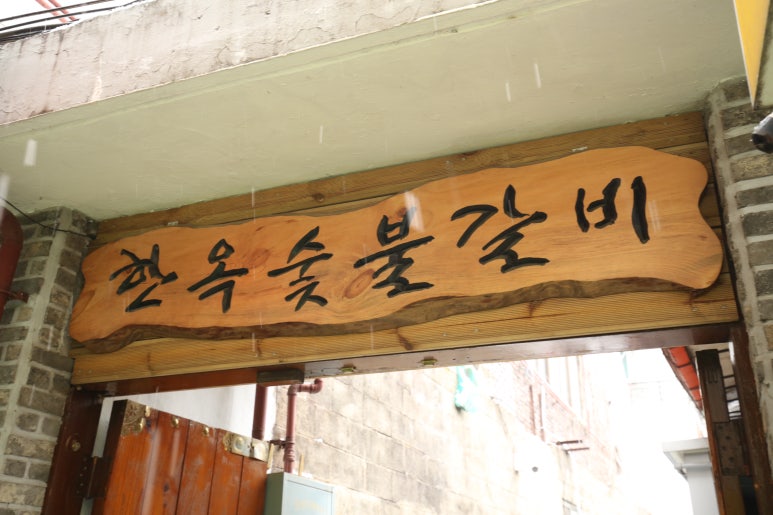 한옥숯불갈비